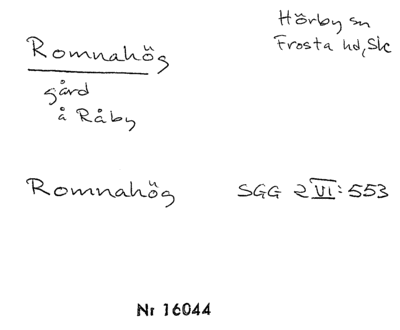 Hörby sn
Frosta hd, Sk
Romnahög
gård
å Råby
Romnahög
SGG 2 VI: 553
Nr 16044